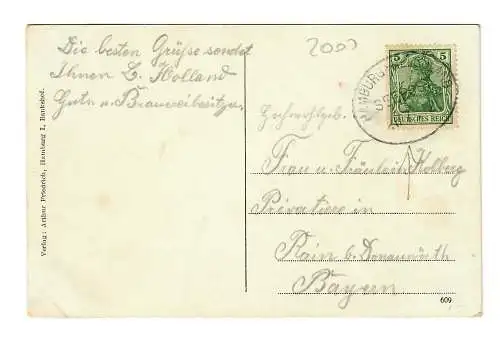 Die besten Grüße sendet
Ihnen L. Holland
Guts u. Brauereibesitzer.
2000
5 5
DEUTSCHES REICH
HAMBURG
Hochwohlgeb.
Frau u. Fräulein Holberg
Private in
Rain b. Donauwörth
Bayern
609
Verlag: Arthur Friedrich, Hamburg I, Bankshof.